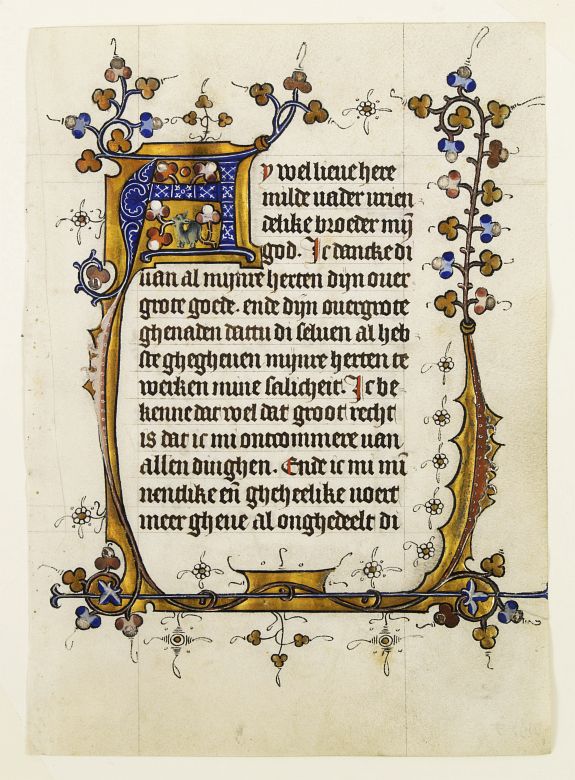 Ay wel lieue here
milde uader urien
delike broeder mij
god. Ic dancke di
uan al mijnre herten dijn ouer
grote goede. ende dijn ouergrote
ghenaden dattu di seluen al heb
ste ghegheuen mijnre herten te
werken mine salicheit. Ic be
kenne dat wel dat groot recht
is dat ic mi ontcommere uan
allen dinghen. Ende ic mi mi
nentlike en̄ gheheelike uoert
meer gheue al onghedeelt di